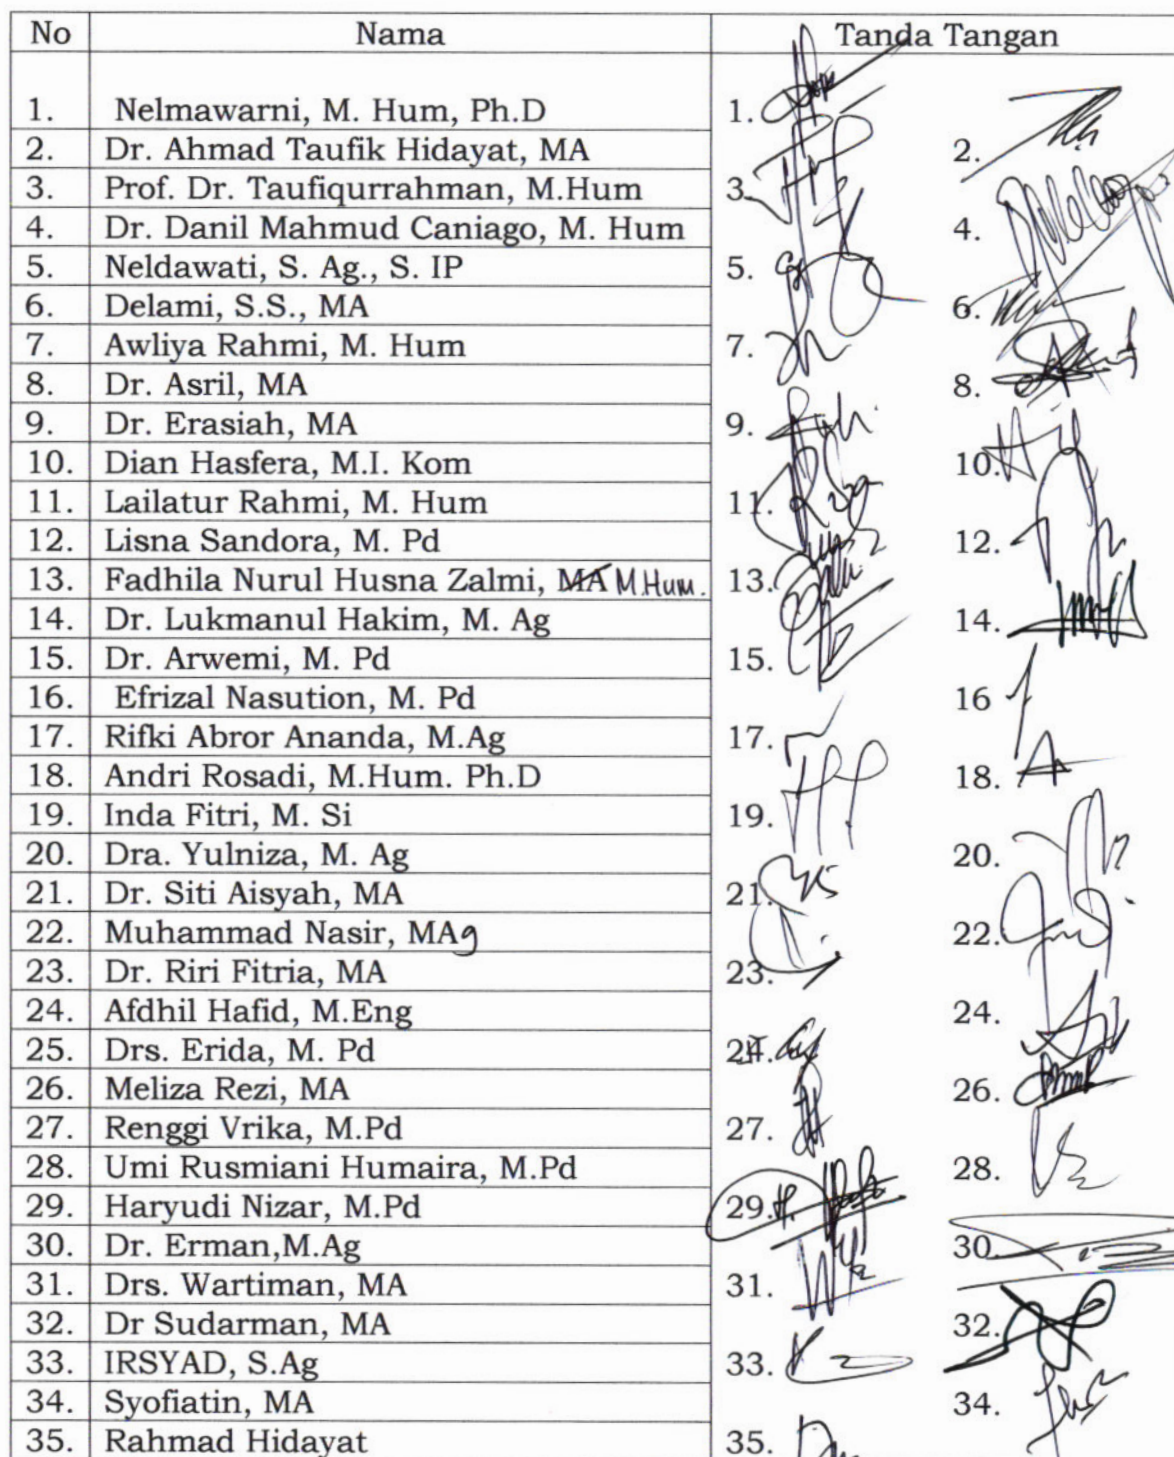 No Nama Tanda Tangan
1. Nelmawarni, M. Hum, Ph.D 1.
2. Dr. Ahmad Taufik Hidayat, MA 2.
3. Prof. Dr. Taufiqurrahman, M.Hum 3.
4. Dr. Danil Mahmud Caniago, M. Hum 4.
5. Neldawati, S. Ag., S. IP 5.
6. Delami, S.S., MA 6.
7. Awliya Rahmi, M. Hum 7.
8. Dr. Asril, MA 8.
9. Dr. Erasiah, MA 9.
10. Dian Hasfera, M.I. Kom 10.
11. Lailatur Rahmi, M. Hum 11.
12. Lisna Sandora, M. Pd 12.
13. Fadhila Nurul Husna Zalmi, MA M.Hum. 13.
14. Dr. Lukmanul Hakim, M. Ag 14.
15. Dr. Arwemi, M. Pd 15.
16. Efrizal Nasution, M. Pd 16
17. Rifki Abror Ananda, M.Ag 17.
18. Andri Rosadi, M.Hum. Ph.D 18.
19. Inda Fitri, M. Si 19.
20. Dra. Yulniza, M. Ag 20.
21. Dr. Siti Aisyah, MA 21.
22. Muhammad Nasir, MAg 22.
23. Dr. Riri Fitria, MA 23.
24. Afdhil Hafid, M.Eng 24.
25. Drs. Erida, M. Pd
26. Meliza Rezi, MA 26.
27. Renggi Vrika, M.Pd 27.
28. Umi Rusmiani Humaira, M.Pd 28.
29. Haryudi Nizar, M.Pd 29.
30. Dr. Erman,M.Ag 30.
31. Drs. Wartiman, MA 31.
32. Dr Sudarman, MA 32.
33. IRSYAD, S.Ag 33.
34. Syofiatin, MA 34.
35. Rahmad Hidayat 35.